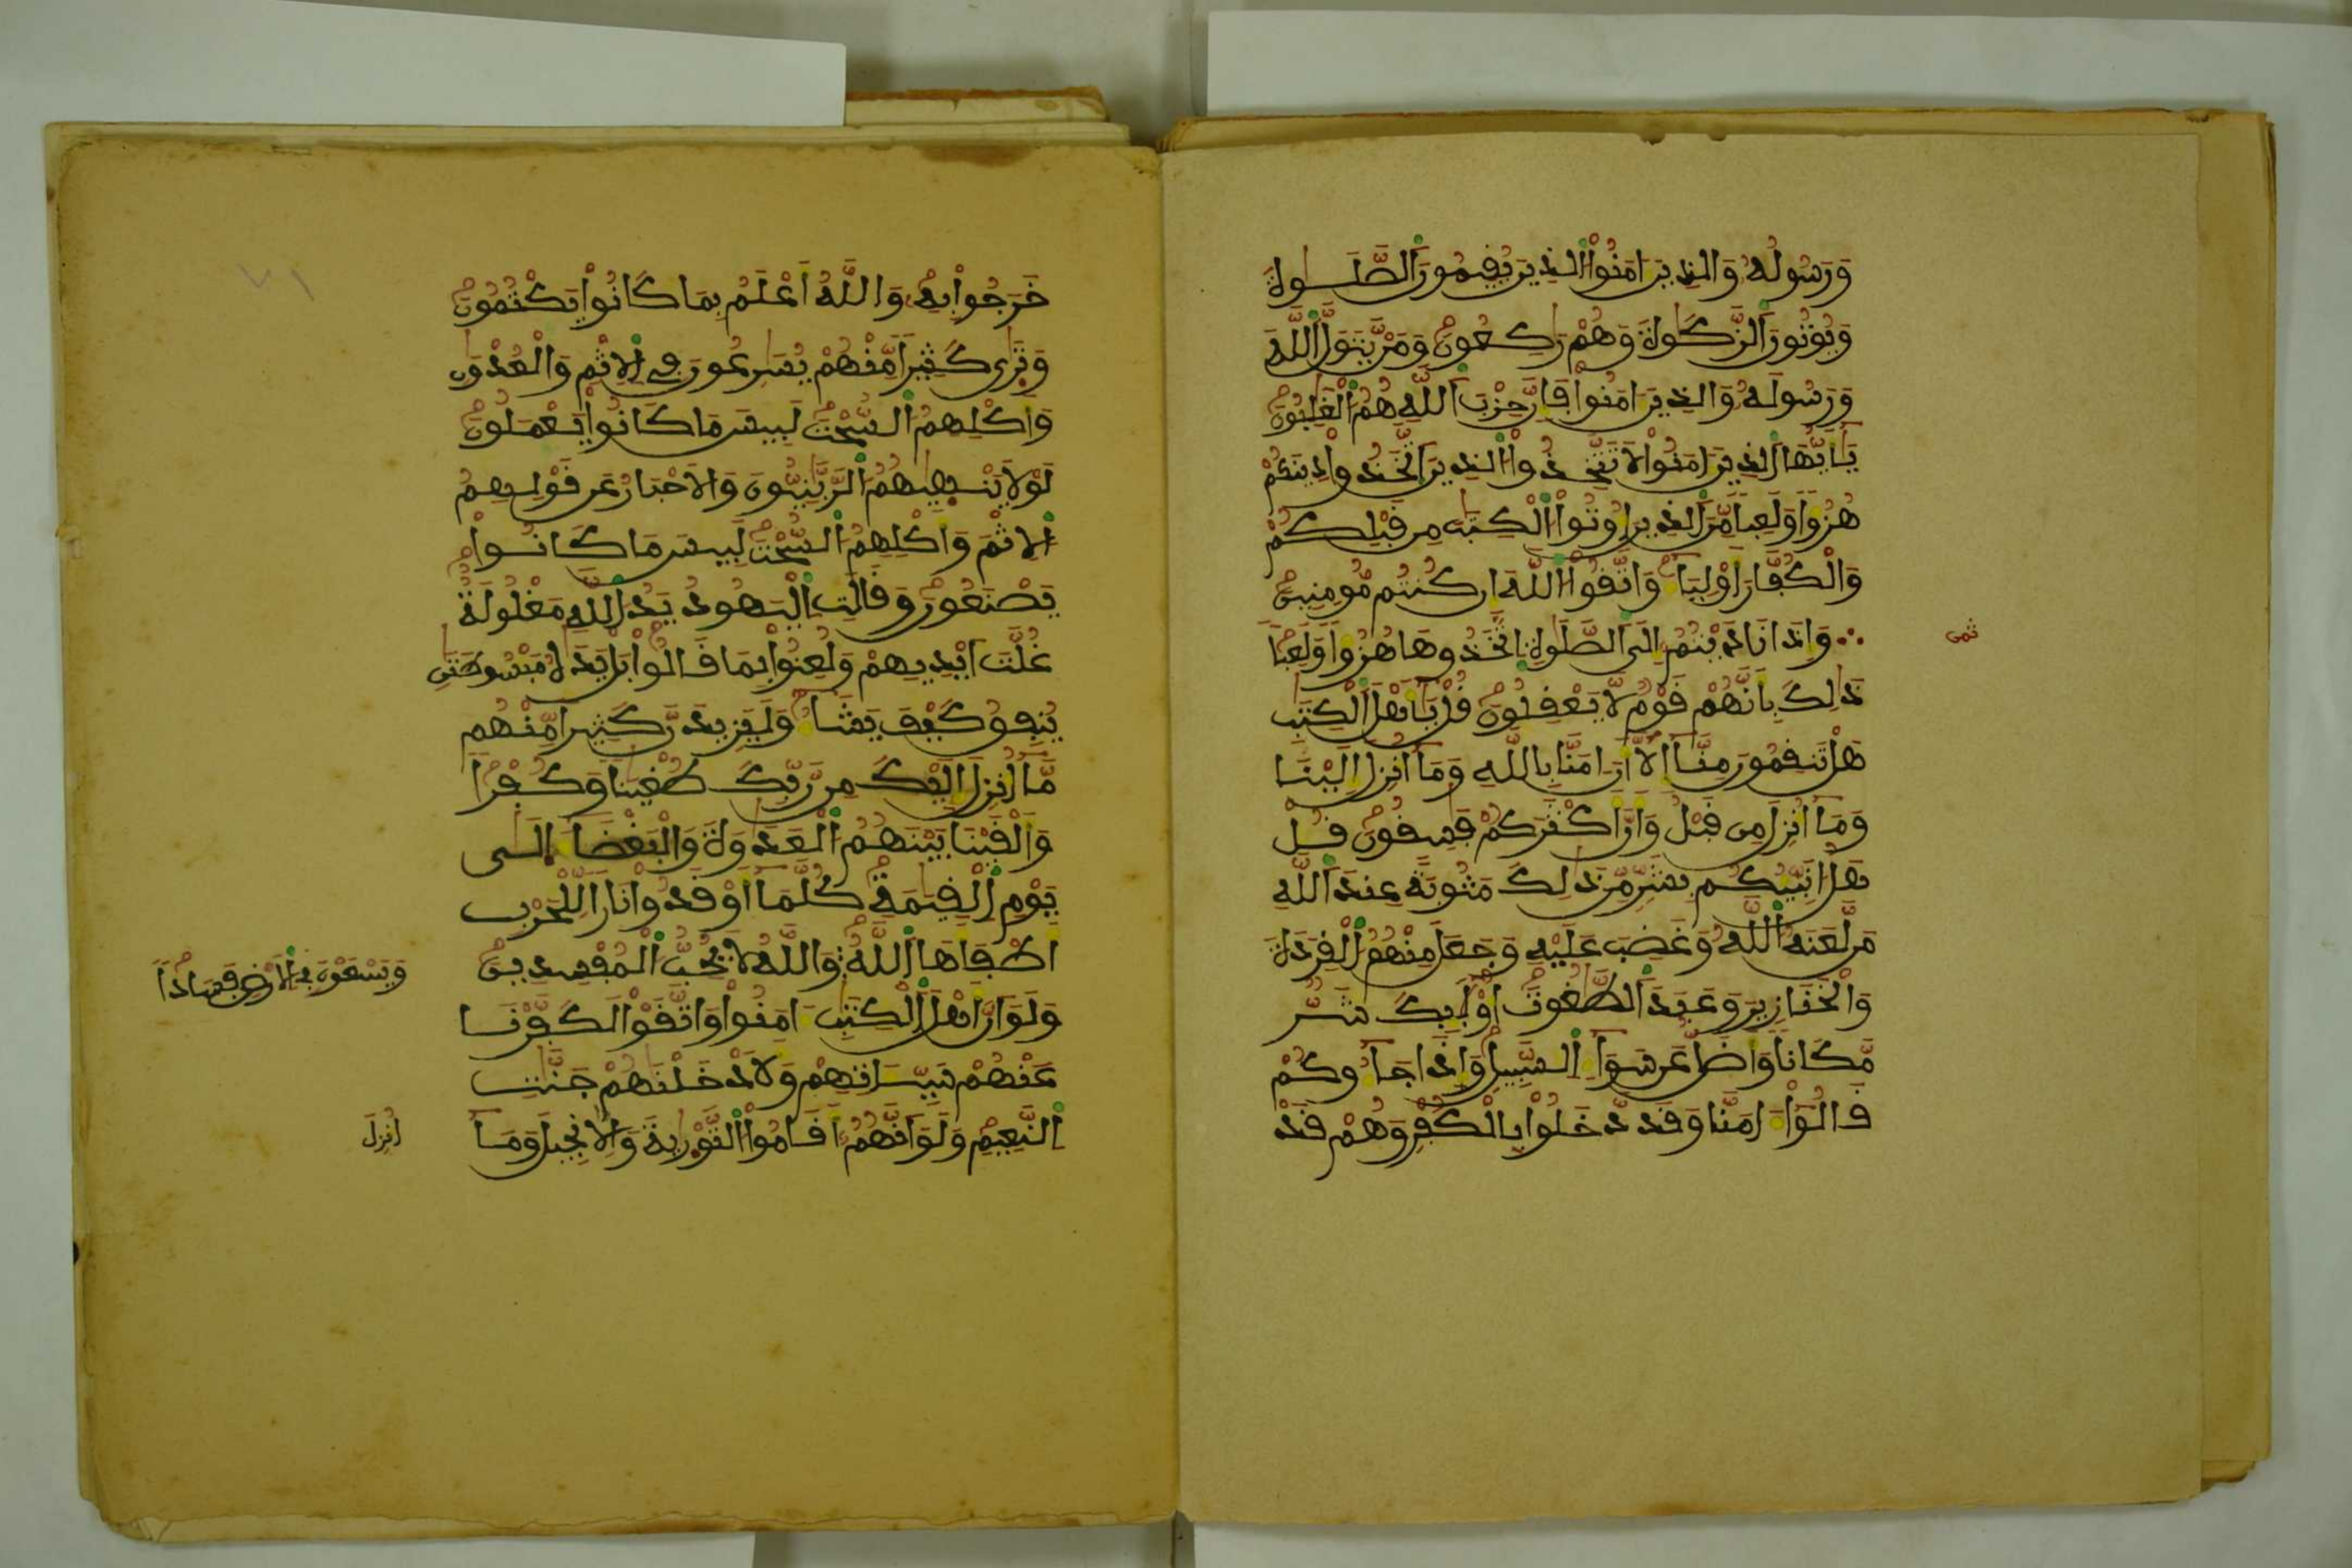 وَرَسُولُهُ وَالذِينَ ءَامَنُوا الذِينَ يُقِيمُونَ الصَّلَوٰةَ
وَيُوتُونَ الزَّكَوٰةَ وَهُمْ رَٰكِعُونَ وَمَنْ يَّتَوَلَّ اللَّهَ
وَرَسُولَهُ وَالذِينَ ءَامَنُوا فَإِنَّ حِزْبَ اللَّهِ هُمُ الْغَٰلِبُونَ
يَٰأَيُّهَا الذِينَ ءَامَنُوا لَا تَتَّخِذُوا الذِينَ اتَّخَذُوا دِينَكُمْ
هُزُؤًا وَلَعِبًا مِّنَ الذِينَ أُوتُوا الْكِتَٰبَ مِن قَبْلِكُمْ
وَالْكُفَّارَ أَوْلِيَآءَ وَاتَّقُوا اللَّهَ إِن كُنتُم مُّومِنِينَ
ثمن
وَإِذَا نَادَيْتُمُ إِلَى الصَّلَوٰةِ اتَّخَذُوهَا هُزُؤًا وَلَعِبًا
ذَٰلِكَ بِأَنَّهُمْ قَوْمٌ لَّا يَعْقِلُونَ قُلْ يَٰأَهْلَ الْكِتَٰبِ
هَلْ تَنقِمُونَ مِنَّا إِلَّا أَنَ ـامَنَّا بِاللَّهِ وَمَا أُنزِلَ إِلَيْنَا
وَمَا أُنزِلَ مِن قَبْلُ وَأَنَّ أَكْثَرَكُمْ فَٰسِقُونَ قُلْ
هَلْ أُنَبِّيُكُم بِشَرٍّ مِّن ذَٰلِكَ مَثُوبَةً عِندَ اللَّهِ
مَن لَّعَنَهُ اللَّهُ وَغَضِبَ عَلَيْهِ وَجَعَلَ مِنْهُمُ الْقِرَدَةَ
وَالْخَنَازِيرَ وَعَبَدَ الطَّٰغُوتَ أُوْلَٰٓيِكَ شَرٌّ
مَّكَانًا وَأَضَلُّ عَن سَوَآءِ السَّبِيلِ وَإِذَا جَآءُوكُمْ
قَالُوا ءَامَنَّا وَقَد دَّخَلُوا بِالْكُفْرِ وَهُمْ قَدْ
خَرَجُوا بِهِ وَاللَّهُ أَعْلَمُ بِمَا كَانُوا يَكْتُمُونَ
وَتَرَىٰ كَثِيرًا مِّنْهُمْ يُسَٰرِعُونَ فِي الْإِثْمِ وَالْعُدْوَٰنِ
وَأَكْلِهِمُ السُّحْتَ لَبِيسَ مَا كَانُوا يَعْمَلُونَ
لَوْلَا يَنْهَيٰهُمُ الرَّبَّٰنِيُّونَ وَالْأَحْبَارُ عَن قَوْلِهِمُ
الْإِثْمَ وَأَكْلِهِمُ السُّحْتَ لَبِيسَ مَا كَانُوا
يَصْنَعُونَ وَقَالَتِ الْيَهُودُ يَدُ اللَّهِ مَغْلُولَةٌ
غُلَّتَ اَيْدِيهِمْ وَلُعِنُوا بِمَا قَالُوا بَلْ يَدَٰهُ مَبْسُوطَتَٰنِ
يُنفِقُ كَيْفَ يَشَآءُ وَلَيَزِيدَنَّ كَثِيرًا مِّنْهُم
مَّا أُنزِلَ إِلَيْكَ مِن رَّبِّكَ طُغْيَٰنًا وَكُفْرًا
وَأَلْقَيْنَا بَيْنَهُمُ الْعَدَٰوَةَ وَالْبَغْضَآءَ إِلَىٰ
يَوْمِ الْقِيَٰمَةِ كُلَّمَا أَوْقَدُوا نَارًا لِّلْحَرْبِ
أَطْفَأَهَا اللَّهُ وَاللَّهُ لَا يُحِبُّ الْمُفْسِدِينَ
وَيَسْعَوْنَ فِي الْأَرْضِ فَسَادًا
وَلَوَ اَنَّ أَهْلَ الْكِتَٰبِ ءَامَنُوا وَاتَّقَوْا لَكَفَّرْنَا
عَنْهُمْ سَيِّـَٔاتِهِمْ وَلَأَدْخَلْنَٰهُمْ جَنَّٰتِ
النَّعِيمِ وَلَوَ اَنَّهُمُ أَقَامُوا التَّوْرَيٰةَ وَالْإِنجِيلَ وَمَا
أُنزِلَ